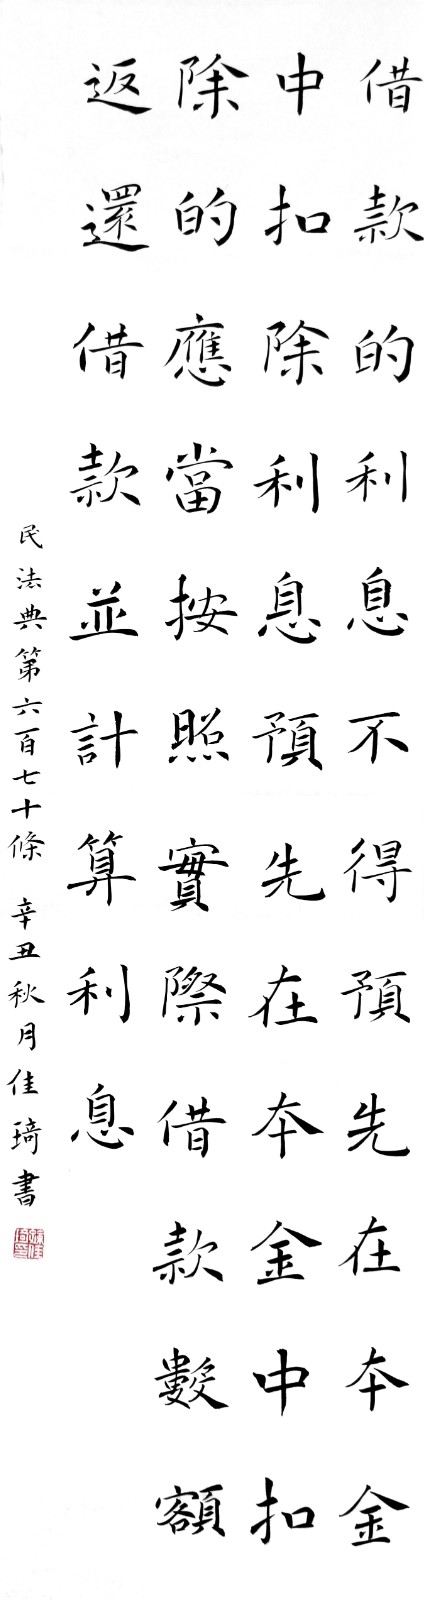 借款的利息不得預先在本金
中扣除利息預先在本金中扣
除的應當按照實際借款數額
返還借款並計算利息
民法典第六百七十條 辛丑秋月佳琦書